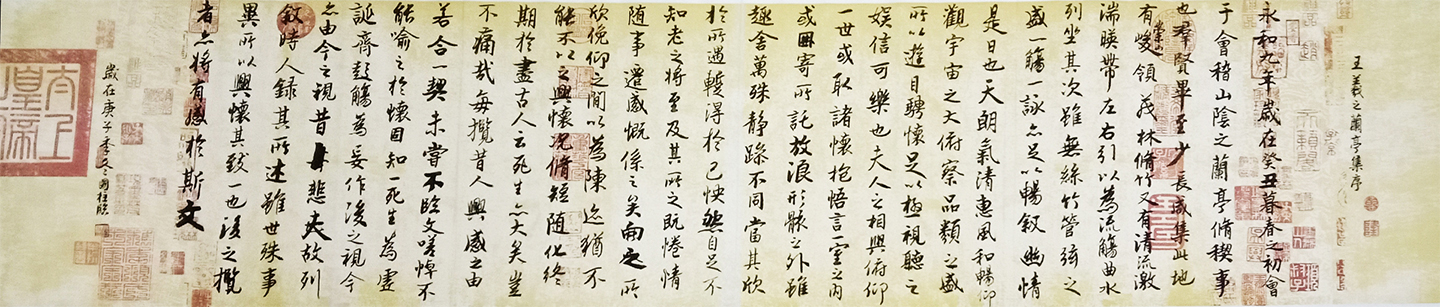 王羲之蘭亭集序
永和九年歲在癸丑暮春之初會
于會稽山陰之蘭亭脩稧事
也群賢畢至少長咸集此地
有崇山峻領茂林脩竹又有清流激
湍暎帶左右引以為流觴曲水
列坐其次雖無絲竹管弦之
盛一觴一詠亦足以暢敘幽情
是日也天朗氣清惠風和暢仰
觀宇宙之大俯察品類之盛
所以遊目騁懷足以極視聽之
娛信可樂也夫人之相與俯仰
一世或取諸懷抱悟言一室之內
或因寄所託放浪形骸之外雖
趣舍萬殊靜躁不同當其欣
於所遇蹔得於己怏然自足不
知老之將至及其所之既惓情
隨事遷感慨係之矣向之所
欣俛仰之間以為陳迹猶不
能不以之興懷況脩短隨化終
期於盡古人云死生亦大矣豈
不痛哉每攬昔人興感之由
若合一契未嘗不臨文嗟悼不
能喻之於懷固知一死生為虛
誕齊彭殤為妄作後之視今
亦由今之視昔悲夫故列
敘時人錄其所述雖世殊事
異所以興懷其致一也後之攬
者亦將有感於斯文
歲在庚子季冬
太上皇帝